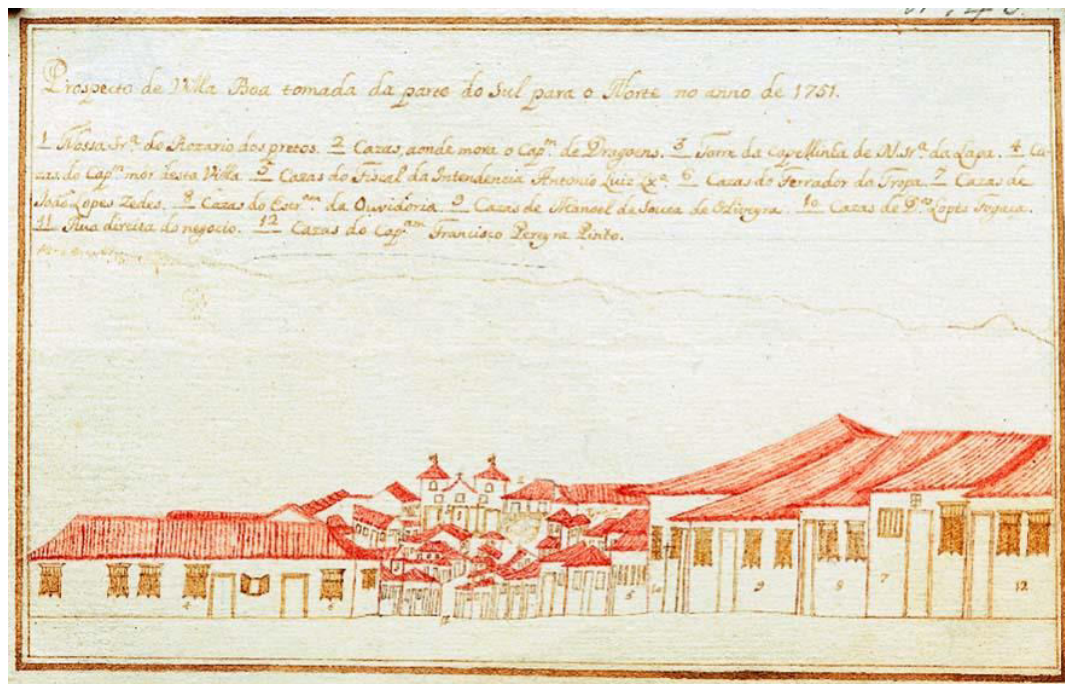 Prospecto de Villa Boa tomada da parte do Sul para o Norte no anno de 1751.
1 Nossa Srª. do Rozario dos pretos. 2 Cazas, aonde mora o Capᵐ. de Dragoens. 3 Torre da Capellinha de N. Srª. da Lapa. 4 Ca-
zas do Capᵐ. mór desta Villa 5 Cazas do Fiscal da Intendencia Antonio Luiz Lxª. 6 Cazas do Ferrador da Tropa. 7 Cazas de
João Lopes Zedes. 8 Cazas do Escrᵃᵐ da Ouvidoria. 9 Cazas de Manoel de Souza de Oliveyra. 10 Cazas de Lopes
11 Rua direita do negocio. 12 Cazas do Capᵃᵐ Francisco Pereyra Pinto.
4 6 5 9 8 7 12